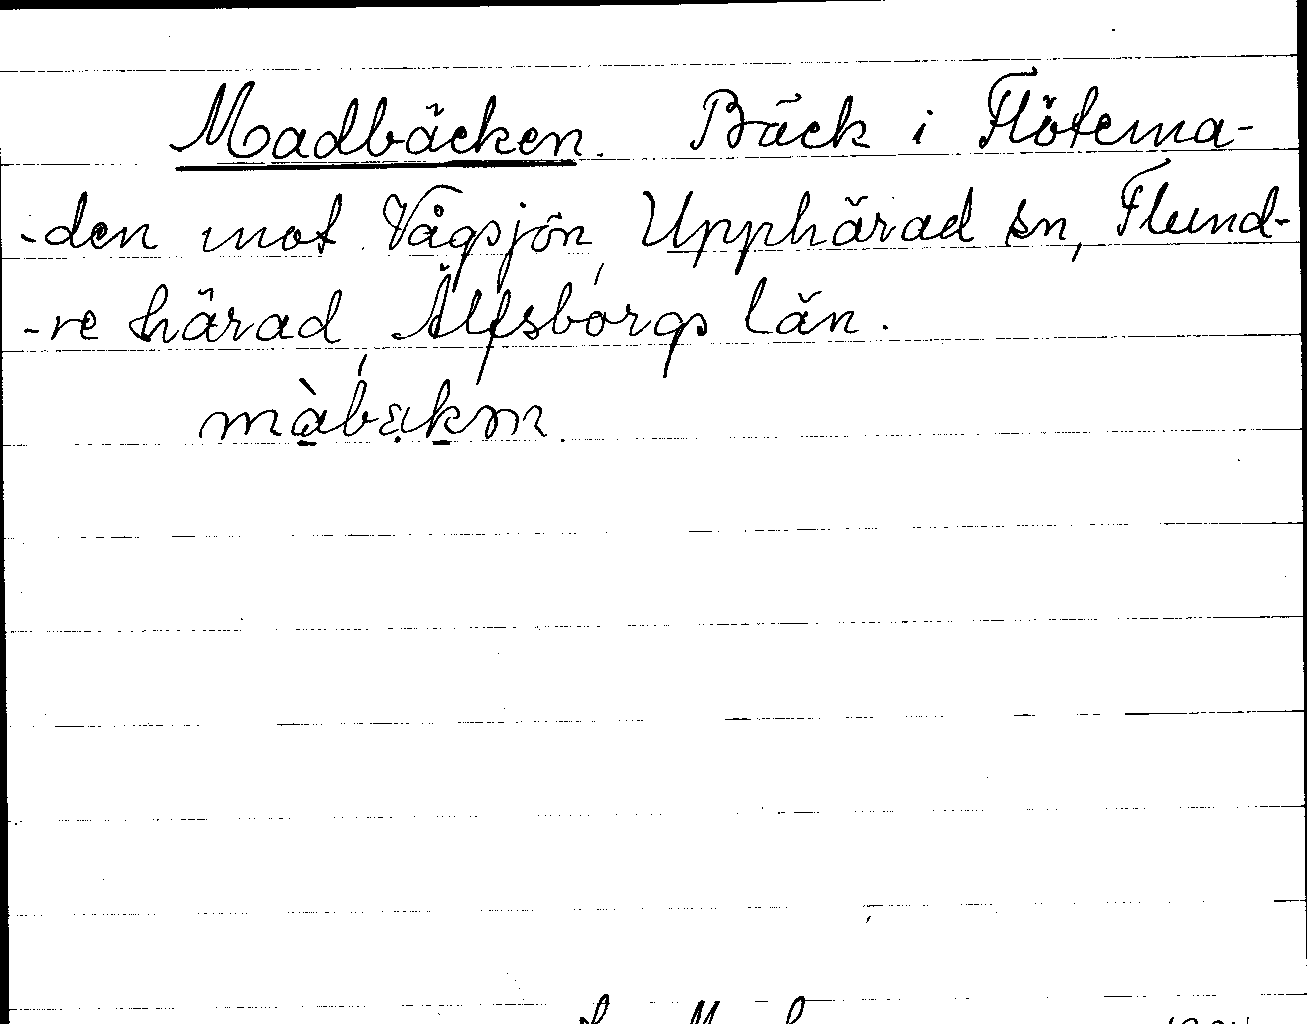 Madbäcken. Bäck i Flötema-
-den mot Vågsjön, Upphärad sn, Flund-
-re härad, Älfsborgs län.
màbäkm